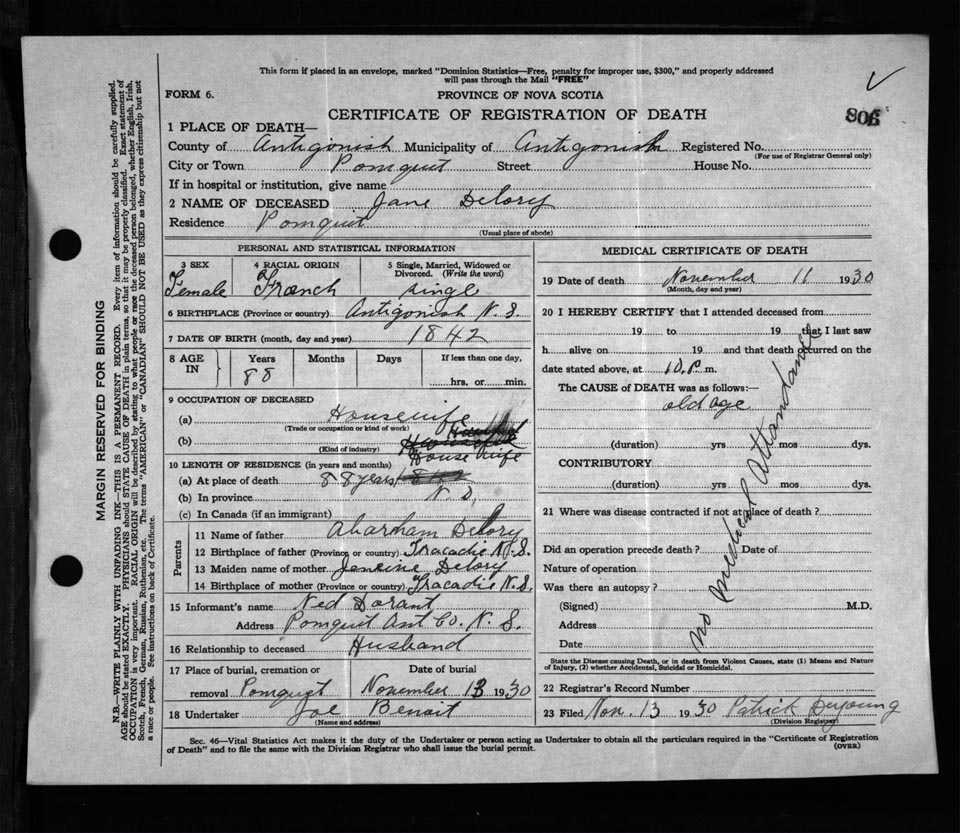 This form if placed in an envelope, marked "Dominion Statistics—Free, penalty for improper use, $300," and properly addressed
will pass through the Mail "FREE"
FORM 6. PROVINCE OF NOVA SCOTIA
806
CERTIFICATE OF REGISTRATION OF DEATH
1 PLACE OF DEATH—
County of Antigonish Municipality of Antigonish Registered No.
(For use of Registrar General only)
City or Town Pomquit Street House No.
If in hospital or institution, give name
2 NAME OF DECEASED Jane Delory
Residence Pomquit
(Usual place of abode)
PERSONAL AND STATISTICAL INFORMATION
3 SEX 4 RACIAL ORIGIN 5 Single, Married, Widowed or
Divorced. (Write the word)
Female French single
6 BIRTHPLACE (Province or country) Antigonish N. S.
7 DATE OF BIRTH (month, day and year) 1842
8 AGE IN Years Months Days If less than one day,
88 hrs. or min.
9 OCCUPATION OF DECEASED
(a) Housewife
(Trade or occupation or kind of work)
(b) House wife
(Kind of industry)
10 LENGTH OF RESIDENCE (in years and months)
(a) At place of death 88 years
(b) In province N. S.
(c) In Canada (if an immigrant)
Parents
11 Name of father Abarham Delory
12 Birthplace of father (Province or country) Tracadie N. S.
13 Maiden name of mother Delory
14 Birthplace of mother (Province or country) Tracadie N. S.
15 Informant's name Ned Dorant
Address Pomquit Ant Co. N. S.
16 Relationship to deceased Husband
17 Place of burial, cremation or Date of burial
removal Pomquet November 13 1930
18 Undertaker Joe Benoit
(Name and address)
MEDICAL CERTIFICATE OF DEATH
19 Date of death November 11 1930
(Month, day and year)
20 I HEREBY CERTIFY that I attended deceased from
19 to 19 that I last saw
h alive on 19 and that death occurred on the
date stated above, at 10. P. m.
The CAUSE of DEATH was as follows:—
old age
(duration) yrs mos dys.
CONTRIBUTORY
(duration) yrs. mos. dys.
21 Where was disease contracted if not at place of death?
Did an operation precede death? Date of
Nature of operation
Was there an autopsy?
(Signed) M.D.
Address
Date
no medical attandance
State the Disease causing Death, or in death from Violent Causes, state (1) Means and Nature
of Injury, (2) whether Accidental, Suicidal or Homicidal.
22 Registrar's Record Number
23 Filed Nov. 13 1930 Patrick Deyoung
(Division Registrar)
Sec. 46—Vital Statistics Act makes it the duty of the Undertaker or person acting as Undertaker to obtain all the particulars required in the "Certificate of Registration
of Death" and to file the same with the Division Registrar who shall issue the burial permit.
(OVER)
MARGIN RESERVED FOR BINDING
N.B.—WRITE PLAINLY WITH UNFADING INK—THIS IS A PERMANENT RECORD. Every item of information should be carefully supplied.
AGE should be stated EXACTLY. PHYSICIANS should STATE CAUSE OF DEATH in plain terms, so that it may be properly classified. Exact statement of
OCCUPATION is very important. RACIAL ORIGIN will be described by stating to what people or race the deceased person belonged, whether English, Irish,
Scotch, French, German, Russian, Ruthenian, etc. The terms "AMERICAN" or "CANADIAN" SHOULD NOT BE USED as they express citizenship but not
a race or people. See instructions on back of Certificate.